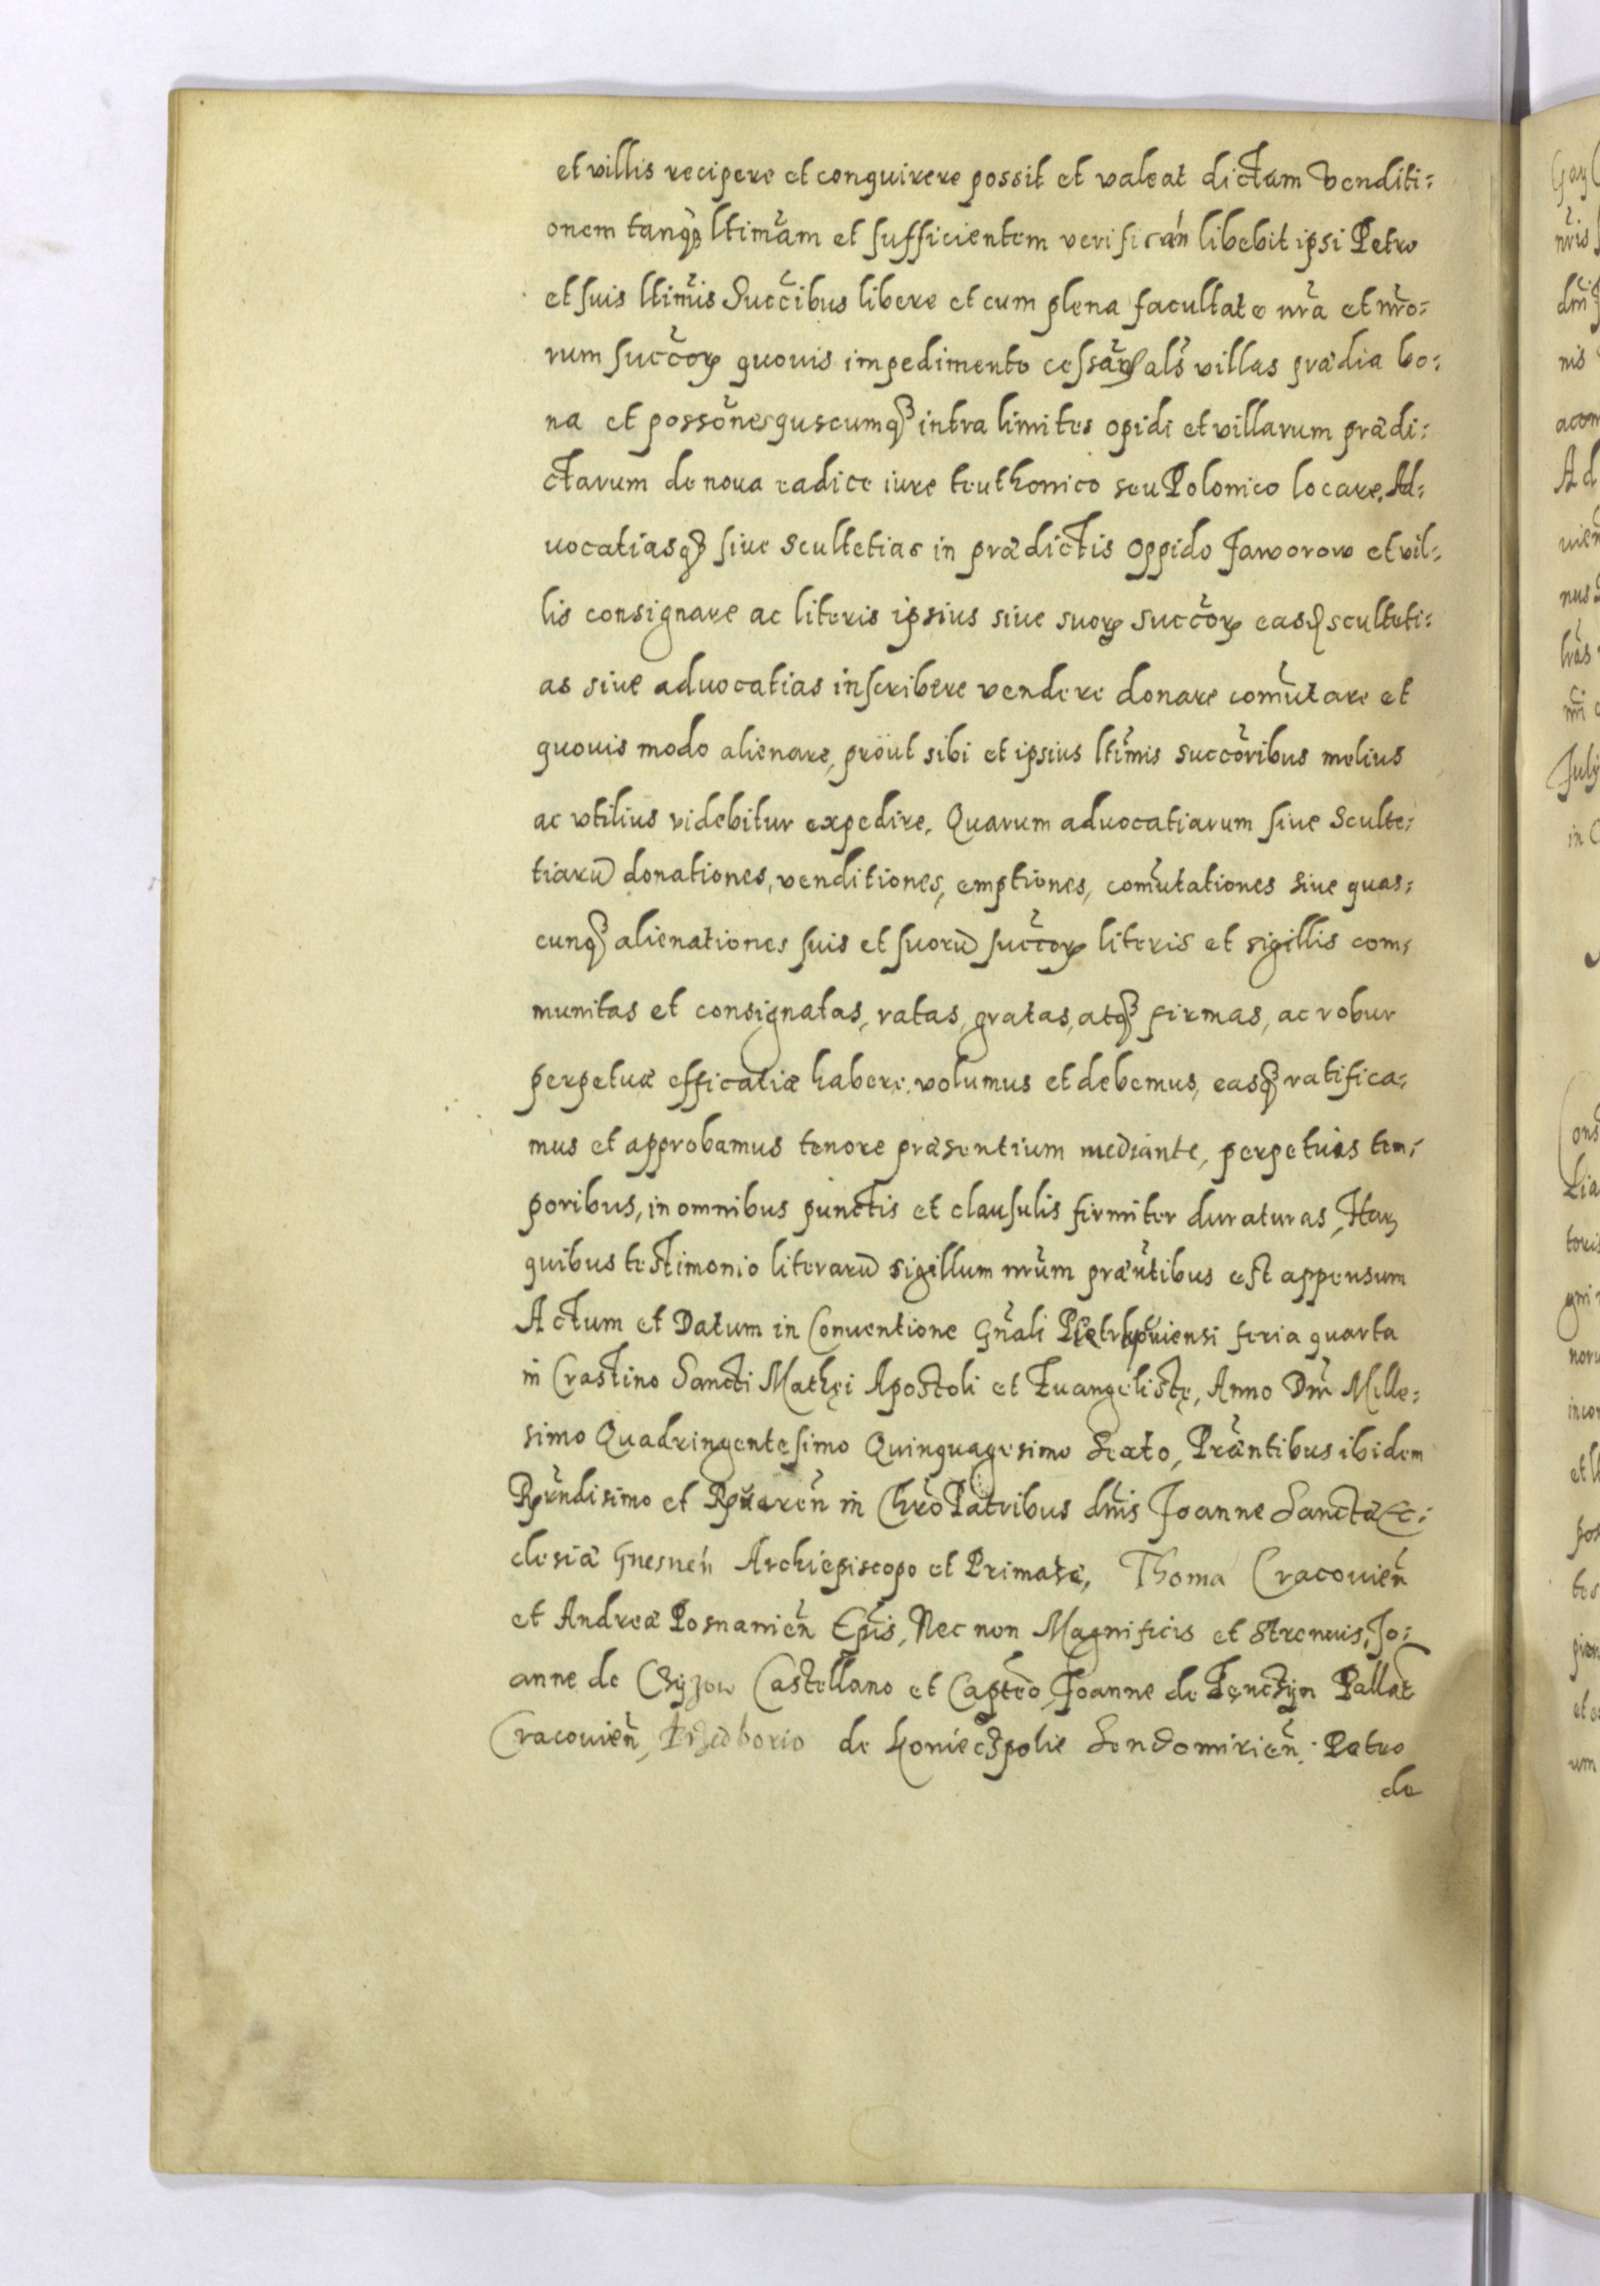 et villis recipere et conquirere possit et valeat dictam venditi:
onem tanqȝ ltimãm et sufficientem verificań libebit ipsi Petro
et suis ltimis̃ Succ̃ibus libere et cum plena facultate nr̃a et nr̃o:
rum succ̃oꝝ quovis impedimento cessañ als̃ villas prædia bo:
na et possõnes quscumqȝ intra limites opidi et villarum prædi:
ctarum de noua radice iure teuthonico seu Polonico locare. Ad:
uocatiasqȝ siue Scultetias in prædictis Oppido Jaworow et vil:
lis consignare ac literis ipsius siue suoꝝ succ̃oꝝ easqȝ sculteti:
as siue aduocatias inscribere vendere donare com̃utare et
quouis modo alienare, prout sibi et ipsius ltim̃is succõribus melius
ac vtilius videbitur expedire. Quarum aduocatiarum siue Sculte:
tiarũ donationes, venditiones, emptiones, com̃utationes siue quas:
cunqȝ alienationes suis et suorũ succ̃oꝝ literis et sigillis com:
munitas et consignatas, ratas, gratas, atqȝ firmas, ac robur
perpetuæ efficatiæ habere volumus et debemus, easqȝ ratifica:
mus et approbamus tenore præsentium mediante, perpetuis tem:
poribus, in omnibus punctis et clausulis firmiter duraturas, Haꝝ
quibus testimonio literarũ sigillum nr̃um præñtibus est appensum
Actum et Datum in Conuentione Gñali feria quarta
in Crastino Sancti Mathęi Apostoli et Euangelistę, Anno Dñi Mille:
simo Quadringentesimo Quinquagesimo Sexto, Præñtibus ibidem
Rr̃ndisimo et in Chr̃o Patribus dñis Joanne Sanctæ Ec:
clesiæ Gnesneń Archiepiscopo et Primate, Thoma Cracouieñ
et Andreæ Posnanieñ Ep̃is, Nec non Magnificis et Strenuis, Jo:
anne de Chyzow Castellano et Captẽo, Joanne de Tęnczyn Pallat̃
Cracouieñ, Przedborio de Konieczpolie Sendomirieñ. Petro
de